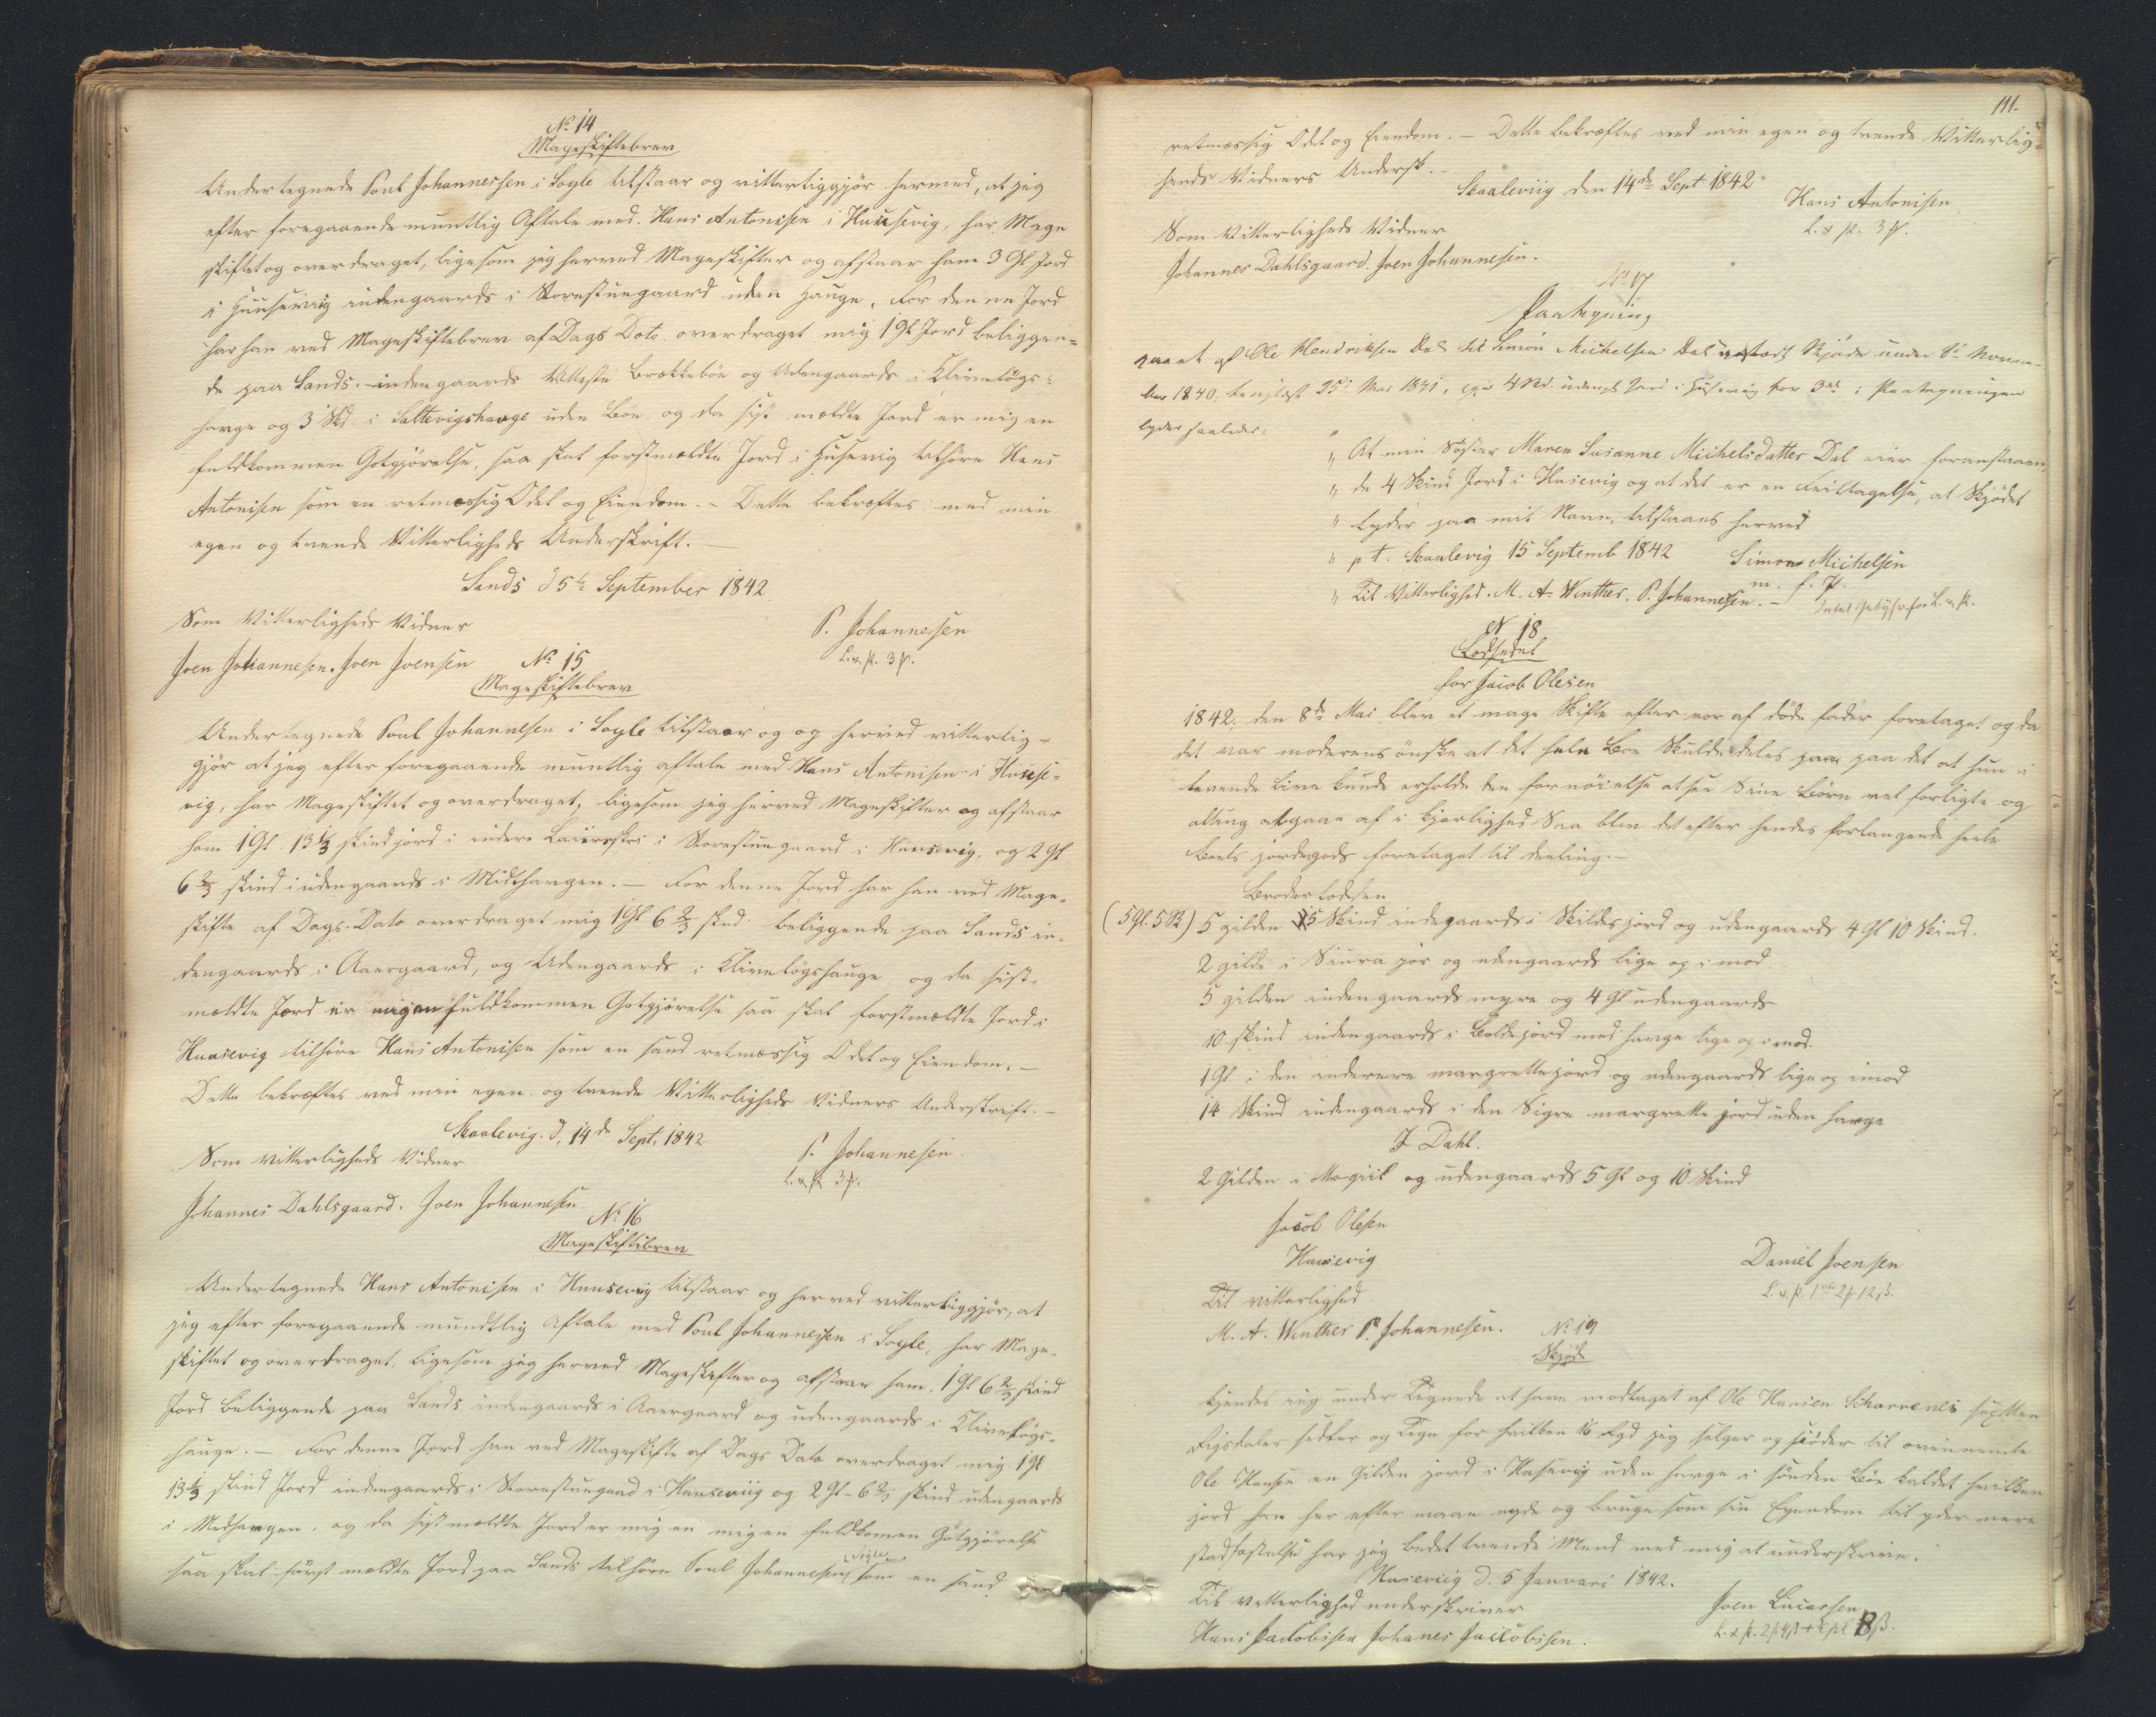 No 14
Mageskiftebrev
Undertegnede Poul Johannessen i Sogle tilstaar og vitterliggjør hermed, at jeg
efter foregaaende muntlig Aftale med Hans Antonisen i Huusevig, har Mage
skiftet og overdraget, ligesom jeg herved Mageskifter og afstaar ham 3 Gl Jord
i Huusevig indengaards i Norestuegaard uden Hauge. For denne Jord
har han ved Mageskiftebrev af Dags Dato overdraget mig 1 Gl Jord beliggen=
de paa Sands indengaards Brekkebøe og Udengaards i Klivaløgs=
hauge og 3 Skd. i Saltevigshauge uden Bøe og da sist mældte Jord er mig en
fuldkommen Gotgjørelse, saa skal forstmældte Jord i Husevig tilhøre Hans
Antonisen som en retmæssig Odel og Eiendom. - Dette bekræftes med min
egen og tvende Vitterligheds Underskrift. -
Sands d 5te September 1842.
Som Vitterligheds Vidner
P. Johannesen
Joen Johannesen. Joen Joensen
L. & p. 3 ß.
No 15
Mageskiftebrev
Undertegnede Poul Johannesen i Sogle tilstaar og og herved vitterlig=
gjør at jeg efter foregaaende muntlig aftale med Hans Antonisen i Huuse=
vig, har Mageskiftet og overdraget, ligesom jeg herved Mageskifter og afstaar
ham 1 Gl. 13 1/3 skind jord i indere i Norestuegaard i Huusevig, og 2 Gl
6 2/3 skind i udengaards i Midthaugen. - For denne Jord har han ved Mage=
skifte af Dags Dato overdraget mig 1 Gl 6 2/3 skd. beliggende paa Sands in=
dengaards i Aaergaard, og Udengaards i Klivaløgshauge og da sist=
mældte Jord er mig en fuldkommen Gotgjørelse saa skal forstmældte Jord i
Huusevig tilhøre Hans Antonisen som en sand retmæssig Odel og Eiendom. -
Dette bekræftes ved min egen og tvende Vitterligheds Vidners Underskrift. -
Skaalevig. d. 14de Sept. 1842
Som Vitterligheds Vidner
P. Johannesen.
Johannes Dahlsgaard. Joen Johannesen.
L. & p. 3 ß.
No 16
Mageskiftebrev
Undertegnede Hans Antonisen i Huusevig tilstaar og herved vitterliggjør, at
jeg efter foregaaende mundtlig Aftale med Poul Johannesen i Sogle, har Mage=
skiftet og overdraget, ligesom jeg herved Mageskifter og afstaar ham. 1 Gl 6 2/3 skind
Jord beliggende paa Sands indengaards i Aaergaard og udengaards i Klivaløgs=
hauge. - For denne Jord han ved Mageskifte af Dags Dato overdraget mig 1 Gl
13 1/3 skind Jord indengaards i Norestuegaard i Huusevig og 2 Gl - 6 2/3 skind udengaards
i Medhaugen, og da sist mældte Jord er mig en mig en fuldkomen Gotgjørelse
saa skal først mældte Jord paa Sands tilhøre Poul Johannesen Sogle som en sand
111.
retmæssig Odel og Eiendom. - Dette bekræftes ved min egen og tvende Vitterlig=
heds Vidners Undersk. -
Skaaleviig den 14de Sept 1842
Hans Antonisen
Som Vitterligheds Vidner
L. & p. 3 ß.
Johannes Dahlsgaard. Joen Johannesen.
No 17
Paategning
paa et af Ole Hendriksen Dal til Simon Michelsen Dal Skjøde under 8de Novem=
ber 1840, tinglæst 25de Mai 1841, 4 Skd. Jord i Husevig for Paategningen
lyder saaledes:
" At min Søster Maren Susanne Michelsdatter Dal eier foranstaaen
" de 4 Skind Jord i Husevig og at det er en Feiltagelse, at Skjødet
" lyder paa mit Navn, tilstaaes herved
" pt. Skaalevig 15 Septemb 1842 Simon Michelsen
m. f. P.
" Til Vitterlighed. M. A. Winther. P. Johannesen. - Intet Gebyhr for L. & p.
No 18
Lodsedel
for Jacob Olesen
1842. den 8de Mai blev et mage Skifte efter vor af døde fader foretaget og da
det var moderens ønske at det hele Boe skulde deles paa det at hun i
levende Live kunde erholde den fornøielse at see Sine Børn vel forligte og
alting afgaae af i kjærlighed Saa blev det efter hendes forlangende hele
Boets jordegods foretaget til deeling. -
Broder Lodsen
(5 Gl. 5 Sk) 5 gilden 5 Skind indegaards i Skildesjord og udengaards 4 Gl 10 Skind.
2 gilde i Siura jør og udengaards lige op i mod
5 gilden indengaards myre og 4 Gl udengaards
10 skind indengaards i Boldejord med hauge lige op i mod.
1 Gl i den indereere margrettejord og udengaards lige op imod
14 Skind indengaards i den Sigre margrette jord uden hauge
I Dahl.
2 Gilden i og udengaards 5 Gl og 10 Skind
Jacob Olesen
Huusevig
Daniel Joensen
Til vitterlighed
L. & p. 1 rbd 2 p 12 ß.
M. A. Winther P. Johannesen.
No 19
Skjøde
Kjendes ieg under Tegnede at have modtaget af Ole Hansen Scharvenes sexten
Rigsdaler sedler og Tegn for hvilken 16 Rgd jeg selger og skøder til ovennemte
Ole Hansen en Gilden jord i Husevig uden hauge i sønden Bøe kaldet hvilken
jord han her efter maae nyde og bruge som sin Eyendom til yder mere
stadfæstelse har jeg bedet tvende Mend med mig at underskrive.
Huseviig d. 5 Januari 1842.
Til vetterlighed underskriver
Joen Lucassen
Hans Jacobsen Johanes Jacobsen.